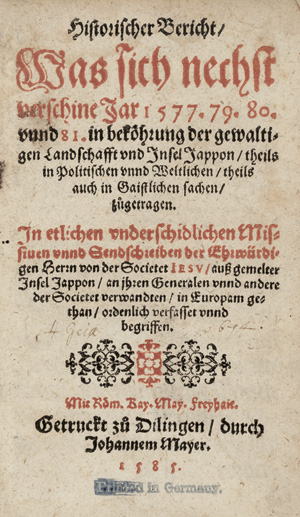 Historischer Bericht/
Was sich nechst
verschine Jar 1577. 79. 80.
vnnd 81. in bekōhrung der gewalti-
gen Landschafft vnd Insel Jappon/ theils
in Politischen vnnd Weltlichen/ theils
auch in Gaistlichen sachen/
zůgetragen.
In etlichen vnderschidlichen Mis-
siuen vnnd Sendschreiben der Ehrwürdi-
gen Herrn von der Societet IESV/ auß gemelter
Insel Jappon/ an jhren Generalen vnnd andere
der Societet verwandten/ in Europam ge-
than/ ordenlich verfasset vnnd
begriffen.
Mit Röm. Kay. May. Freyhait.
Getruckt zů Dilingen/ durch
Johannem Mayer.
1585.
Printed in Germany.